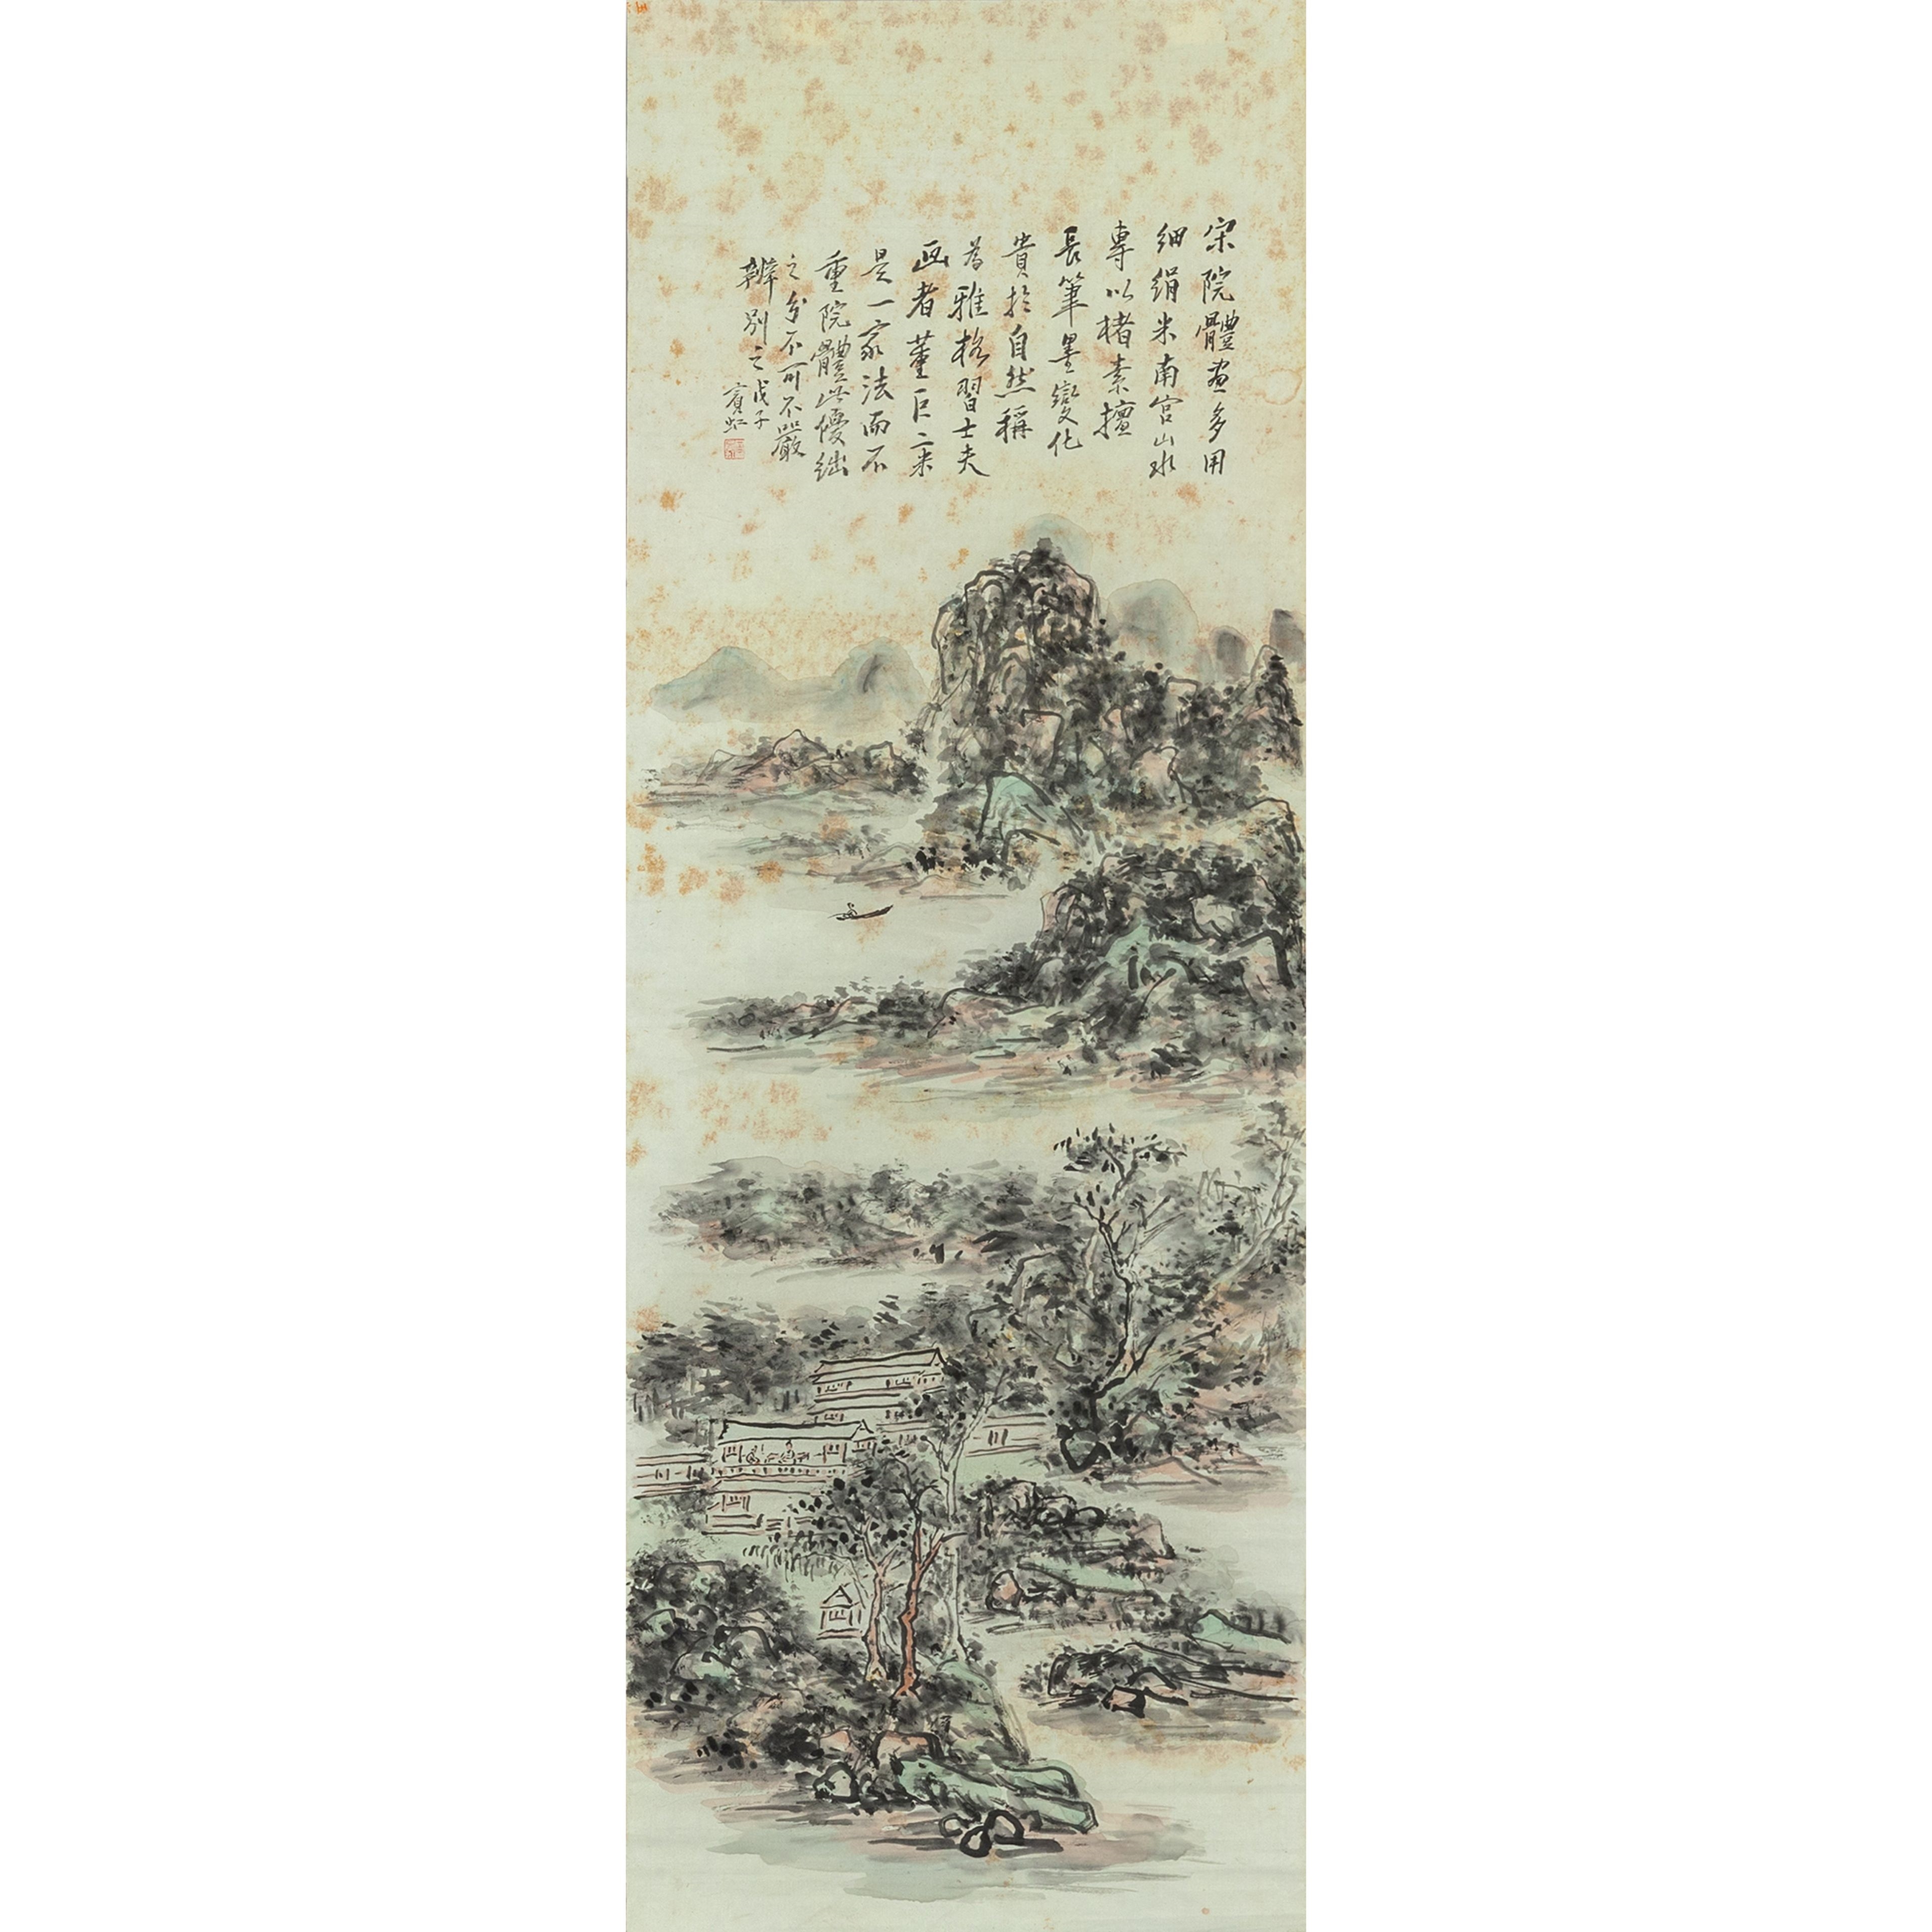 宋院體畫多用
細絹米南宮山水
專以楮素擅
長筆墨變化
貴於自然稱
為雅格習士夫
画者董巨二米
是一家法而不
重院體此優絀
之分不可不嚴
辨別之戊子
賓虹